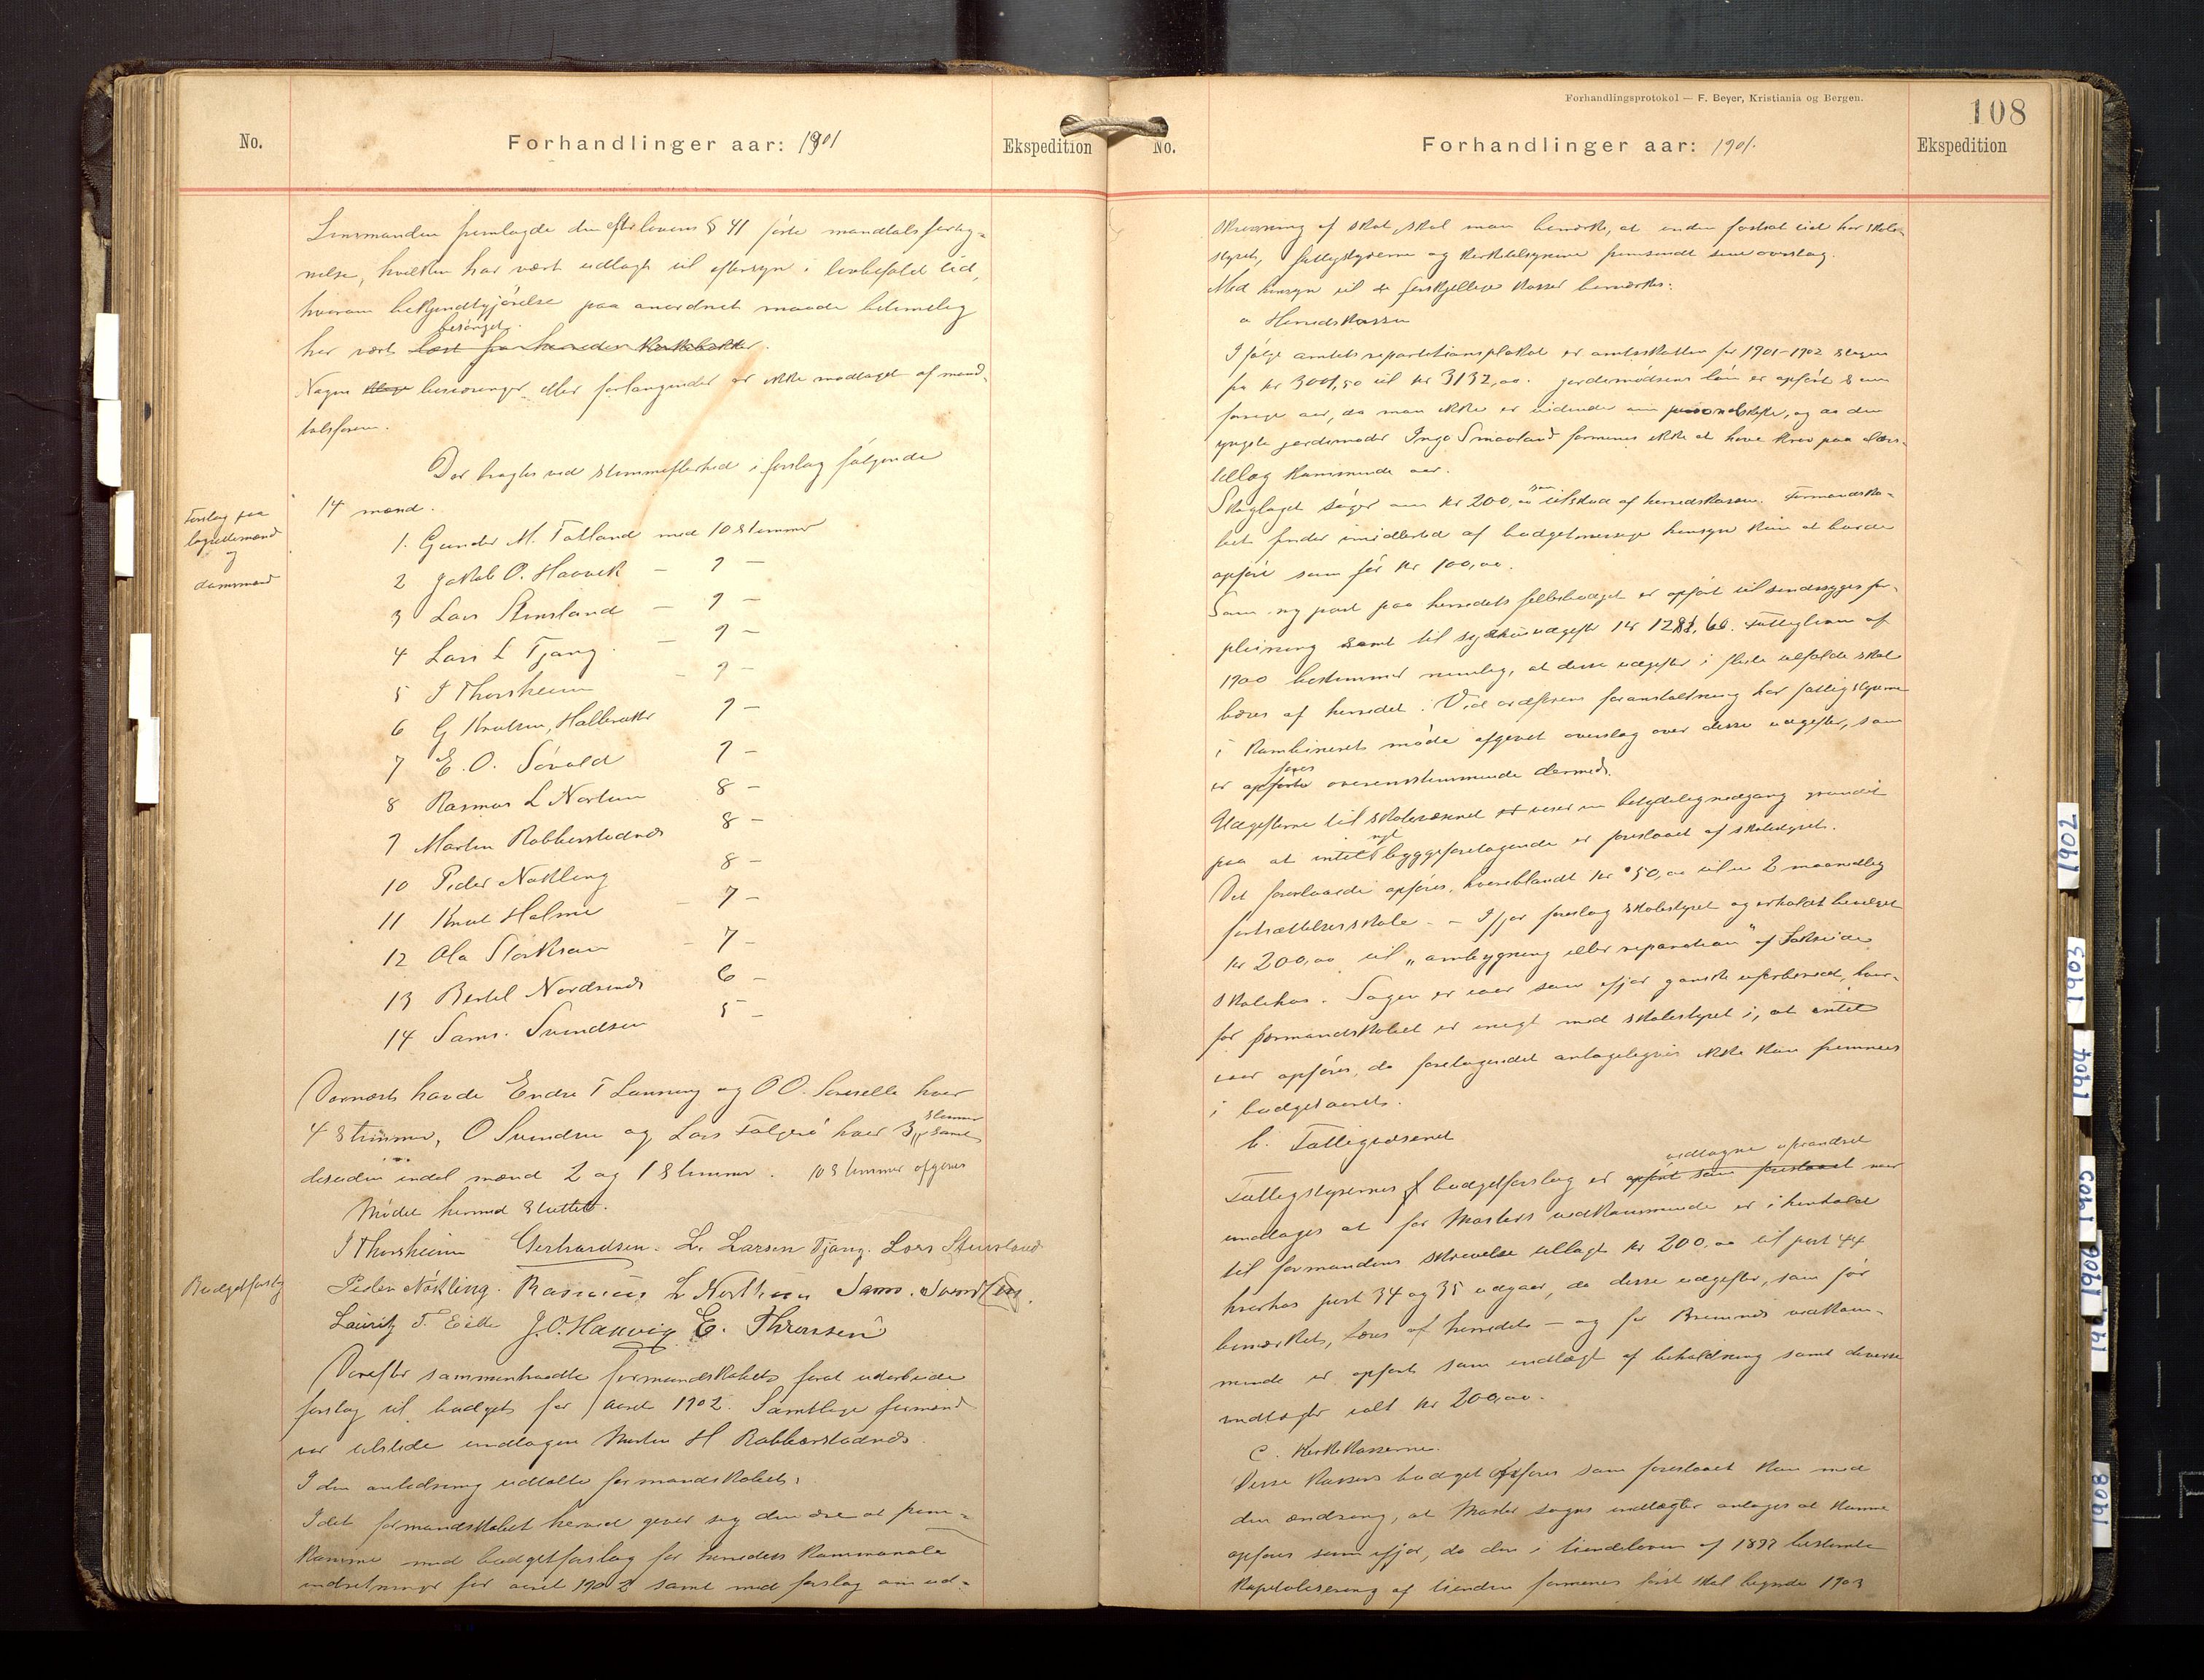 No.
Forhandlinger aar: 1901
Ekspedition
Lensmanden fremlagde den efter lovens § 41 førte mandtalsforteg-
nelse, hvilken har vært udlagt til eftersyn i lovbefalet tid,
hvorom bekjendtgjørelse paa anordnet maade betimelig
besørget.
har vært læst fra herredets kirkebakker.
Nogen klage besværinger eller forlangender er ikke modtaget af mand-
talsføreren.
Der bragtes ved stemmeflerhed i forslag følgende
14 mænd.
Forslag paa
lagrettemænd
og
domsmænd
1. Gunder M. Totland med 10 stemmer
2 Jakob O. Haavik - 9 -
3 Lars Stensland - 9 -
4 Lars L Tjong - 9 -
5 I Thorsheim - 9 -
6 G Knutsen, Hallaraker 9 -
7 E. O. Søvold 9 -
8 Rasmus L Nortun 8 -
9 Morten Robberstadnes 8 -
10 Peder Nøkling 8 -
11 Knut Holme - 7 -
12 Ola Storksen - 7 -
13 Bertel Nordsund 6 -
14 Sams. Svendsen 5 -
Dernæst havde Endre T Lønning og O O. hver
stemmer
4 stemmer, O Svendsen og Lars Folgerø hver 3 samt
desuden endel mænd 2 og 1 stemmer. 10 stemmer afgives
Mødet hermed sluttet.
I Thorsheim Gerhardsen. L. Larsen Tjong. Lars Stensland
Budgetforslag
Peder Nøkling. Rasmus L Northun Sams. Svendsen.
Lauritz T. Eide J. O. Haavig E. Thronsen
Derefter sammentraadte formandskabet forat udarbeide
forslag til budget for aaret 1902. Samtlige formænd
var tilstede undtagen Morten H Robberstadnes.
I den anledning udtalte formandskabet:
Idet formandskabet herved giver sig den ære at frem-
komme med budgetforslag for herredets kommunale
indretninger for aaret 1902 samt med forslag om ud-
Forhandlingsprotokol — F. Beyer, Kristiania og Bergen.
108
No.
Forhandlinger aar: 1901.
Ekspedition
skrivning af skat, skal man bemærke, at inden fastsat tid har skole-
styret, fattigstyrerne og kirketilsynene fremsendt sine overslag.
Med hensyn til de forskjellige kasser bemærkes:
a Herredskassen
I følge amtets repartitionsplakat er amtsskatten for 1901-1902 stegen
fra kr 3001,50 til kr 3132,00. Jordemødrenes løn er opført som
forrige aar, da man ikke er vidende om personalskifte, og da den
yngste jordemoder Inga Smaaland formenes ikke at have krav paa alders-
tillæg kommende aar.
som
Skoglaget søger om kr 200,00 tilskud af herredskassen. Formandska-
bet finder imidlertid af budgetmæssige hensyn kun at burde
opføre som før kr 100,00.
Som ny post paa herredets fællesbudget er opført til sindssyges for-
pleining samt til sygehusudgifter kr 1281,60. Fattigloven af
1900 bestemmer nemlig, at disse udgifter i flere tilfælde skal
bæres af herredet. Ved ordførerens foranstaltning har fattigstyrerne
i kombineret møde afgivet overslag over disse udgifter, som
føres
er opførte overensstemmende dermed.
Udgifterne til skolevæsenet er viser en betydelig nedgang grundet
nyt
paa at intet byggeforetagende er foreslaaet af skolestyret.
Det foreslaaede opføres, hvoriblandt kr 50,00 til en 2 maanedlig
fortsættelsesskole. - Ifjor foreslog skolestyret og erholdt bevilget
kr 200,00 til „ombygning eller reparation" af Sakseide
skolehus. Sagen er iaar som ifjor ganske uforberedt, hvor-
for formandskabet er enigt med skolestyret i, at intet
iaar opføres, da foretagendet antageligvis ikke kan fremmes
i budgetaaret.
b. Fattigvæsenet
vedtagne uforandret
Fattigstyrernes budgetforslag er opført som foreslaaet naar
undtages at for Mosters vedkommende er i henhold
til formandens skrivelse tillagt kr 200,00 til post 44
hvorhos post 34 og 35 udgaar, da disse udgifter, som før
bemærket, bæres af herredet - og for Bremnes vedkom-
mende er opført som indtægt af beholdning samt diverse
indtægter ialt kr 200,00.
c. Kirkekasserne.
Disse kassers budget opføres som foreslaaet kun med
den ændring, at Moster sogns indtægter antages at kunne
opføres som ifjor, da den i tiendeloven af 1897 bestemte
kapitalisering af tienden formenes først skal begynde 1903
1902
1903
1904
1905
1906
1908